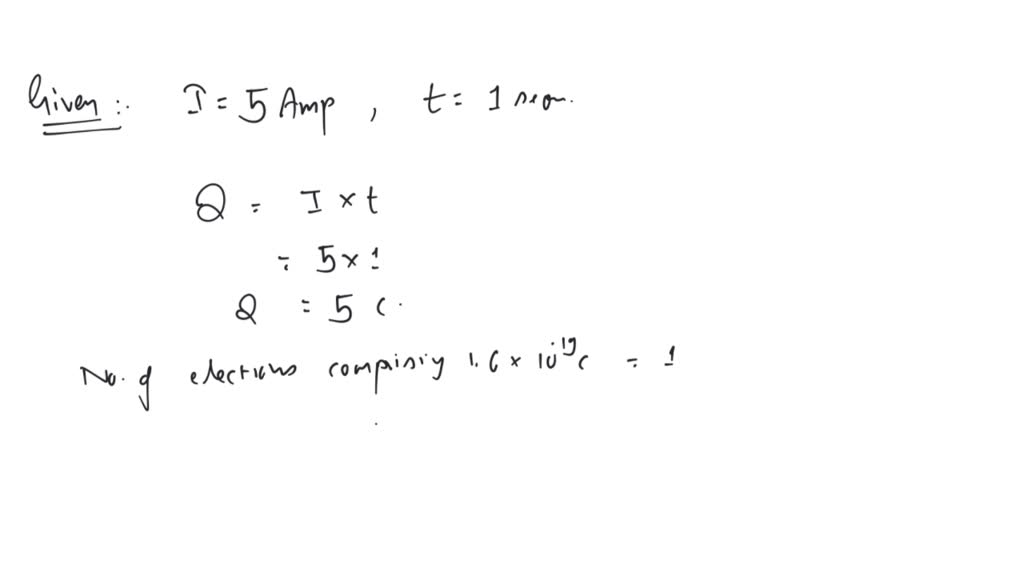 Given :- I = 5 Amp , t = 1
Q = I × t
= 5 × 1
Q = 5 C.
No. of electrons comprising 1.6 × 10⁻¹⁹ C = 1